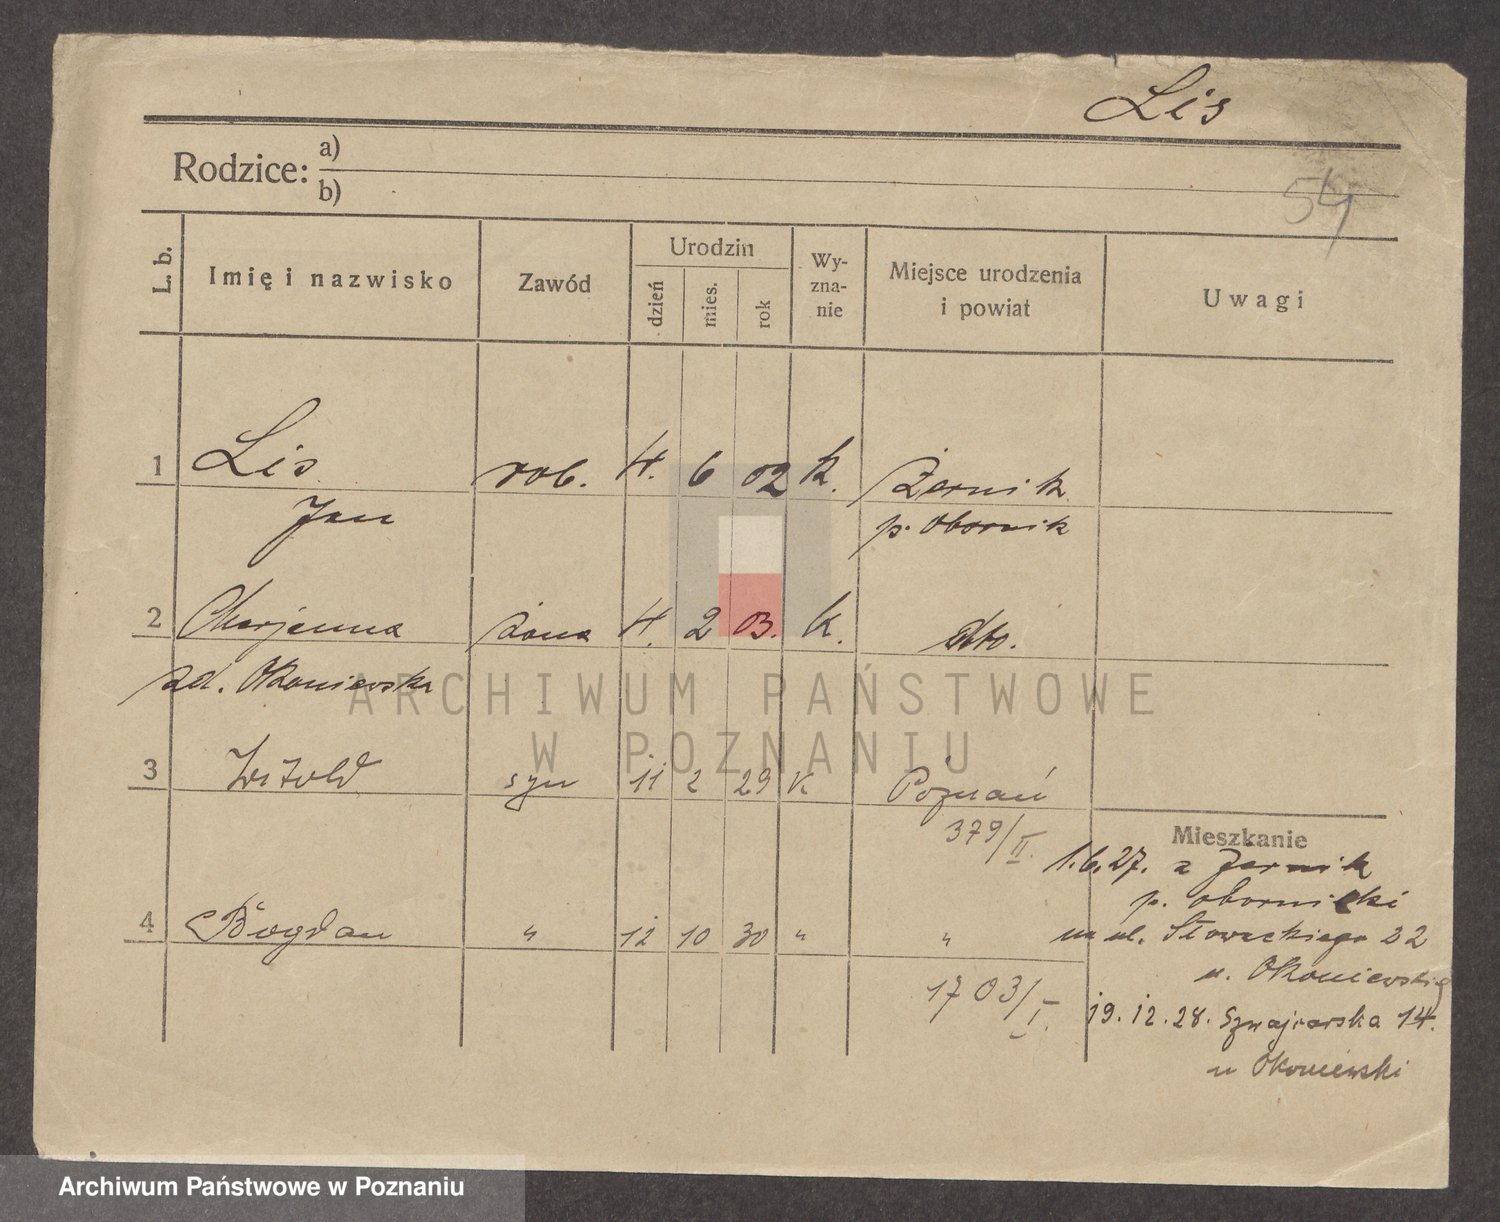 Lis
Rodzice: a)
b)
54
L. b. Imię i nazwisko Zawód Urodzin dzień mies. rok Wy-zna-nie Miejsce urodzenia i powiat Uwagi
1 Lis rob. 4. 6 02 k. Żernik
Jan p. Obornik
2 Marjanna żona 4. 2 03. k. dto.
zd. Okoniewska
ARCHIWUM PAŃSTWOWE
W POZNANIU
3 Witold syn 11 2 29 k Poznań
379/II.
4 Bogdan " 12 10 30 " "
1703/I.
Mieszkanie
1.6.27. z Żernik
p. obornicki
na ul. Słowackiego 22
u. Okoniewskiej
19.12.28. Szwajcarska 14.
u Okoniewski
Archiwum Państwowe w Poznaniu